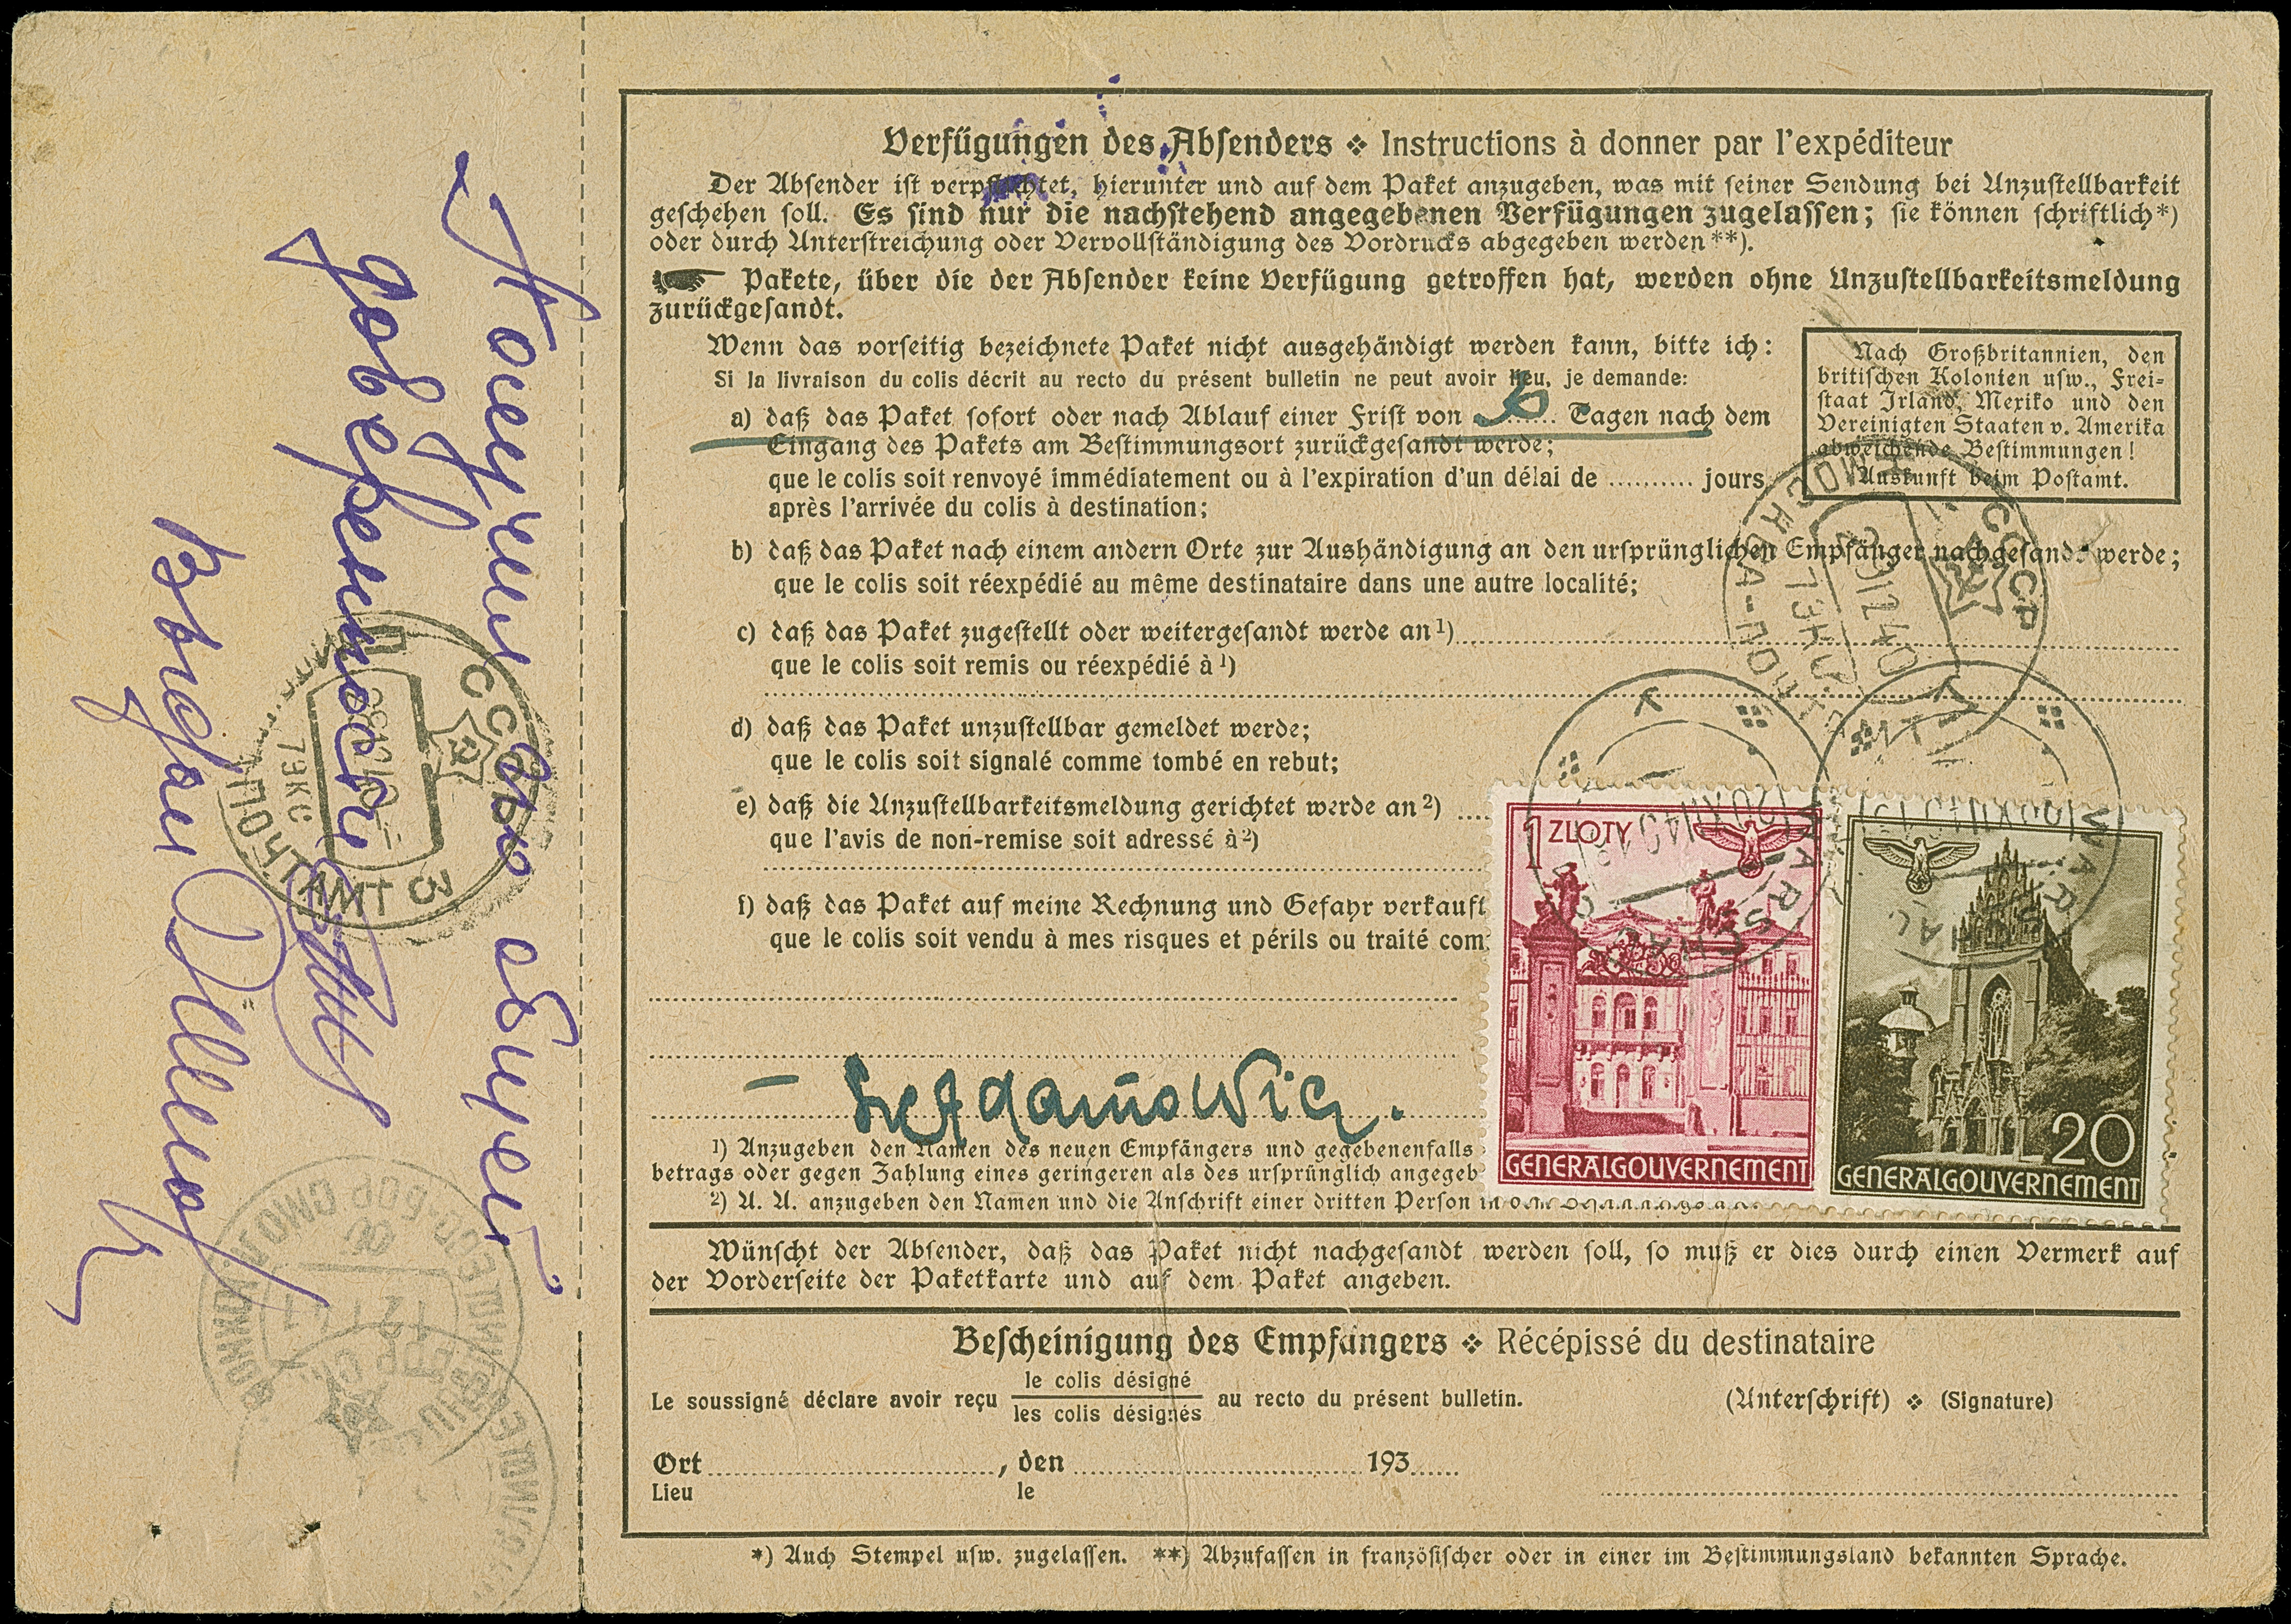 Verfügungen des Absenders ❖ Instructions à donner par l'expéditeur
Der Absender ist verpflichtet, hierunter und auf dem Paket anzugeben, was mit seiner Sendung bei Unzustellbarkeit
geschehen soll. Es sind nur die nachstehend angegebenen Verfügungen zugelassen; sie können schriftlich*)
oder durch Unterstreichung oder Vervollständigung des Vordrucks abgegeben werden**).
Pakete, über die der Absender keine Verfügung getroffen hat, werden ohne Unzustellbarkeitsmeldung
zurückgesandt.
Wenn das vorseitig bezeichnete Paket nicht ausgehändigt werden kann, bitte ich:
Si la livraison du colis décrit au recto du présent bulletin ne peut avoir lieu, je demande:
Nach Großbritannien, den
britischen Kolonien usw., Frei-
staat Irland, Mexiko und den
Vereinigten Staaten v. Amerika
abweichende Bestimmungen!
Auskunft beim Postamt.
a) daß das Paket sofort oder nach Ablauf einer Frist von ........ Tagen nach dem
Eingang des Pakets am Bestimmungsort zurückgesandt werde;
que le colis soit renvoyé immédiatement ou à l'expiration d'un délai de .......... jours
après l'arrivée du colis à destination;
b) daß das Paket nach einem andern Orte zur Aushändigung an den ursprünglichen Empfänger nachgesandt werde;
que le colis soit réexpédié au même destinataire dans une autre localité;
c) daß das Paket zugestellt oder weitergesandt werde an¹)
que le colis soit remis ou réexpédié à ¹)
d) daß das Paket unzustellbar gemeldet werde;
que le colis soit signalé comme tombé en rebut;
e) daß die Unzustellbarkeitsmeldung gerichtet werde an²)
que l'avis de non-remise soit adressé à²)
f) daß das Paket auf meine Rechnung und Gefahr verkauft
que le colis soit vendu à mes risques et périls ou traité com
1 ZŁOTY
GENERALGOUVERNEMENT
20
GENERALGOUVERNEMENT
WARSCHAU
WARSCHAU
СССР
МОСКВА-ПОЧТ
СССР
ПОЧТАМТ
¹) Anzugeben den Namen des neuen Empfängers und gegebenenfalls
betrags oder gegen Zahlung eines geringeren als des ursprünglich angegeb
²) U. U. anzugeben den Namen und die Anschrift einer dritten Person
Wünscht der Absender, daß das Paket nicht nachgesandt werden soll, so muß er dies durch einen Vermerk auf
der Vorderseite der Paketkarte und auf dem Paket angeben.
Bescheinigung des Empfängers ❖ Récépissé du destinataire
Le soussigné déclare avoir reçu le colis désigné / les colis désignés au recto du présent bulletin.
(Unterschrift) ❖ (Signature)
Ort ........ , den ........ 193......
Lieu le
*) Auch Stempel usw. zugelassen. **) Abzufassen in französischer oder in einer im Bestimmungsland bekannten Sprache.